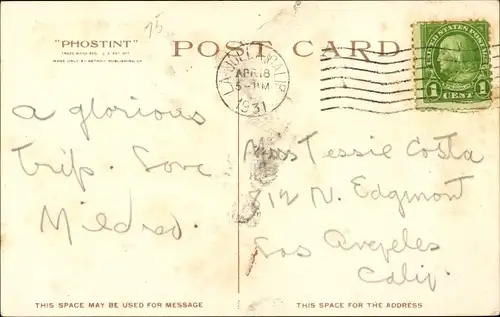 75
"PHOSTINT"
TRADE MARK REG. U.S. PAT. OFF.
MADE ONLY BY DETROIT PUBLISHING CO.
POST CARD
LA JOLLA, CALIF.
APR 18
5-PM
1931
UNITED STATES POSTAGE
1 CENT 1
a glorious
trip. Love
Mildred.
Miss Tessie Costa
812 N. Edgmont
Los Angeles
Calif.
THIS SPACE MAY BE USED FOR MESSAGE
THIS SPACE FOR THE ADDRESS